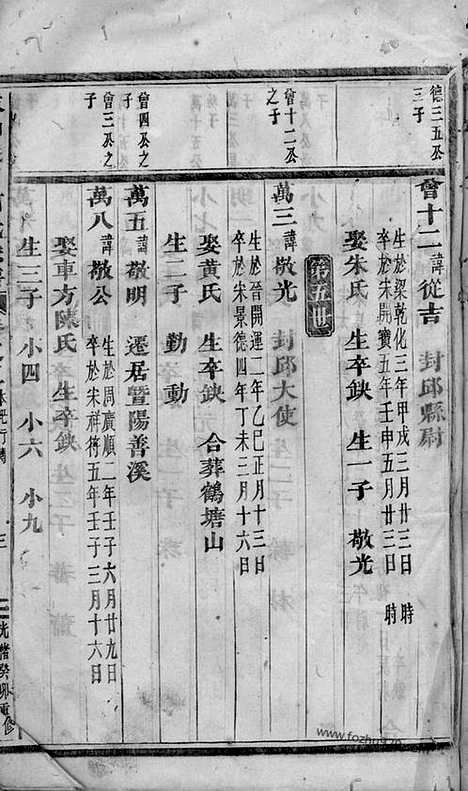 德三五公
三子
會十二諱從吉 封邱縣尉
生於梁乾化三年甲戌三月廿三日 時
卒於宋開寶五年壬申五月廿三日 時
娶朱氏 生卒缺 生一子 敬光
第五世
會十二公
之子
萬三諱敬光 封邱大使
生於晉開運二年乙巳正月十三日
卒於宋景德四年丁未三月十六日
娶黃氏 生卒缺 合葬鶴塘山
生二子 勤 動
會四公之
子
萬五諱敬明 遷居暨陽善溪
會三公之
子
萬八諱敬公
生於周廣順二年壬子六月廿九日
卒於宋祥符五年壬子三月十六日
娶車方陳氏 生卒缺
生三子 小四 小六 小九
光緒癸卯重修
www.fozhu920.com